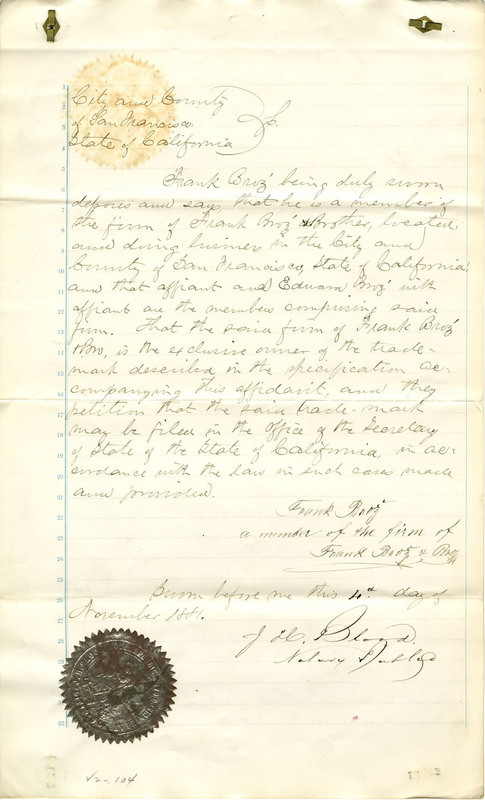 City and County
of San Francisco
State of California
Frank Broz being duly sworn
deposes and says that he is a member of
the firm of Frank Broz & Brother, located
and doing business in the City and
County of San Francisco, State of California,
and that affiant and Edward Broz with
affiant are the members comprising said
firm. That the said firm of Frank Broz
& Bro, is the exclusive owner of the trade-
mark described in the specification ac-
companying this affidavit, and they
petition that the said trade-mark
may be filed in the Office of the Secretary
of State of the State of California, in ac-
cordance with the law in such cases made
and provided.
Frank Broz
a member of the firm of
Frank Broz & Bro
Sworn before me this 4th day of
November 1881.
Notary Public